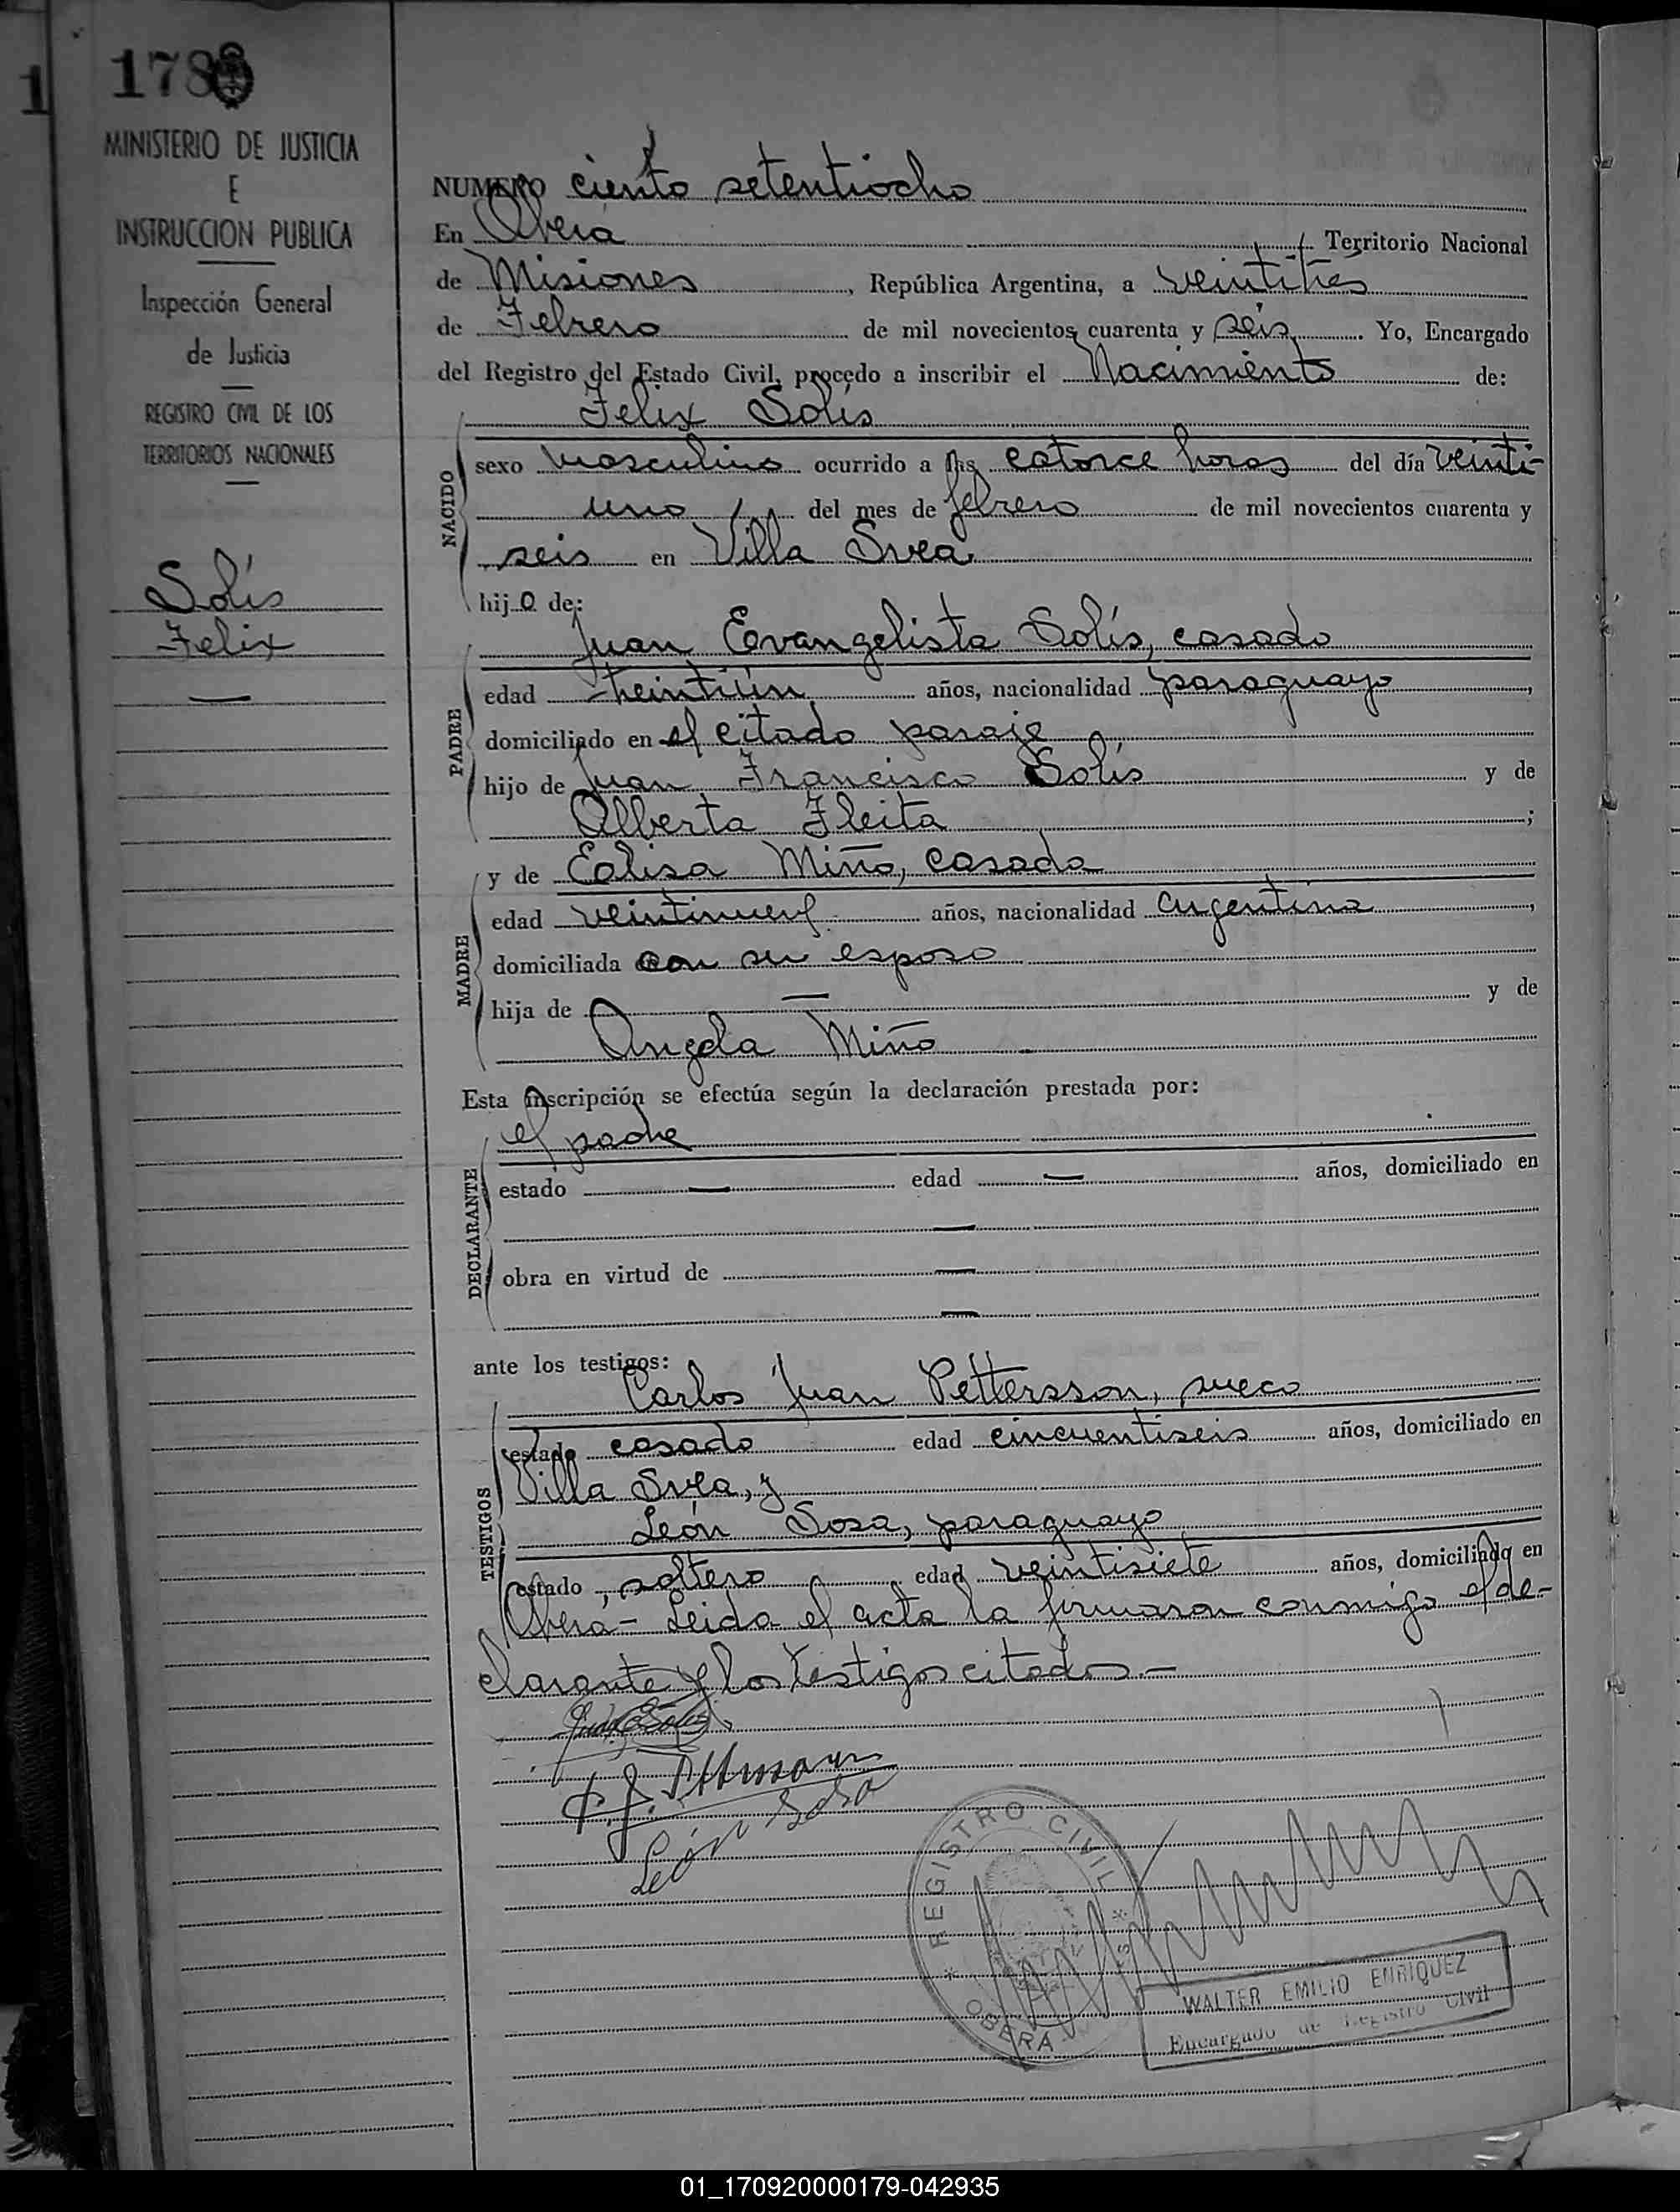 178
MINISTERIO DE JUSTICIA
E
INSTRUCCION PUBLICA
Inspección General
de Justicia
REGISTRO CIVIL DE LOS
TERRITORIOS NACIONALES
Solís
Felix
NUMERO ciento setentiocho
En Oberá Territorio Nacional
de Misiones, República Argentina, a veintitres
de Febrero de mil novecientos cuarenta y seis. Yo, Encargado
del Registro del Estado Civil, procedo a inscribir el Nacimiento de:
Felix Solís
NACIDO
sexo masculino ocurrido a las catorce horas del día veinti-
uno del mes de febrero de mil novecientos cuarenta y
seis en Villa Svea
hijo de:
Juan Evangelista Solís, casado
PADRE
edad treintiún años, nacionalidad paraguayo,
domiciliado en el citado paraje
hijo de Juan Francisco Solís y de
Alberta Fleita;
y de Ealisa Miño, casada
MADRE
edad veintinueve años, nacionalidad argentina,
domiciliada con su esposo
hija de — y de
Angela Miño
Esta inscripción se efectúa según la declaración prestada por:
el padre
DECLARANTE
estado — edad — años, domiciliado en
—
obra en virtud de —
—
ante los testigos:
Carlos Juan Pettersson, sueco
TESTIGOS
estado casado edad cincuentiseis años, domiciliado en
Villa Svea, y
León Sosa, paraguayo
estado, soltero edad veintisiete años, domiciliado en
Oberá- Leida el acta la firmaron conmigo el de-
clarante y los testigos citados.-
León Sosa
REGISTRO CIVIL
OBERA
WALTER EMILIO ENRIQUEZ
Encargado de Registro Civil
01_170920000179-042935